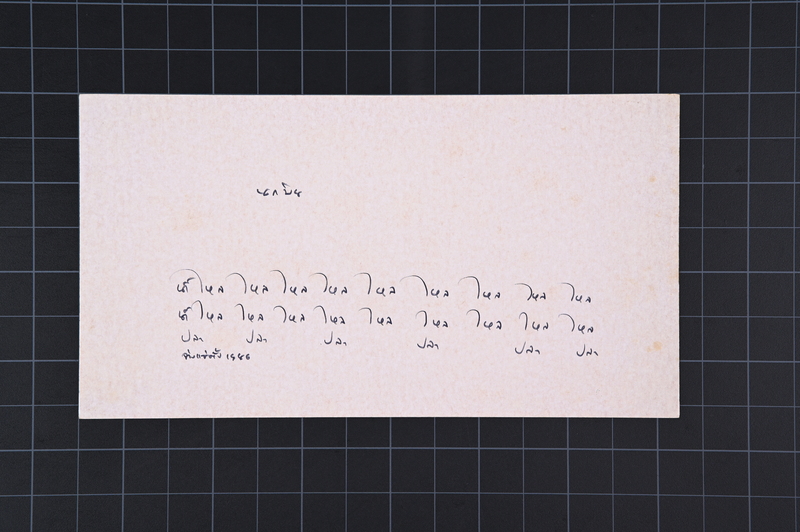 นกบิน
น้ำไหล ไหล ไหล ไหล ไหล ไหล ไหล ไหล ไหล
น้ำไหล ไหล ไหล ไหล ไหล ไหล ไหล ไหล ไหล
ปลา ปลา ปลา ปลา ปลา ปลา
จ่าง แซ่ตั้ง